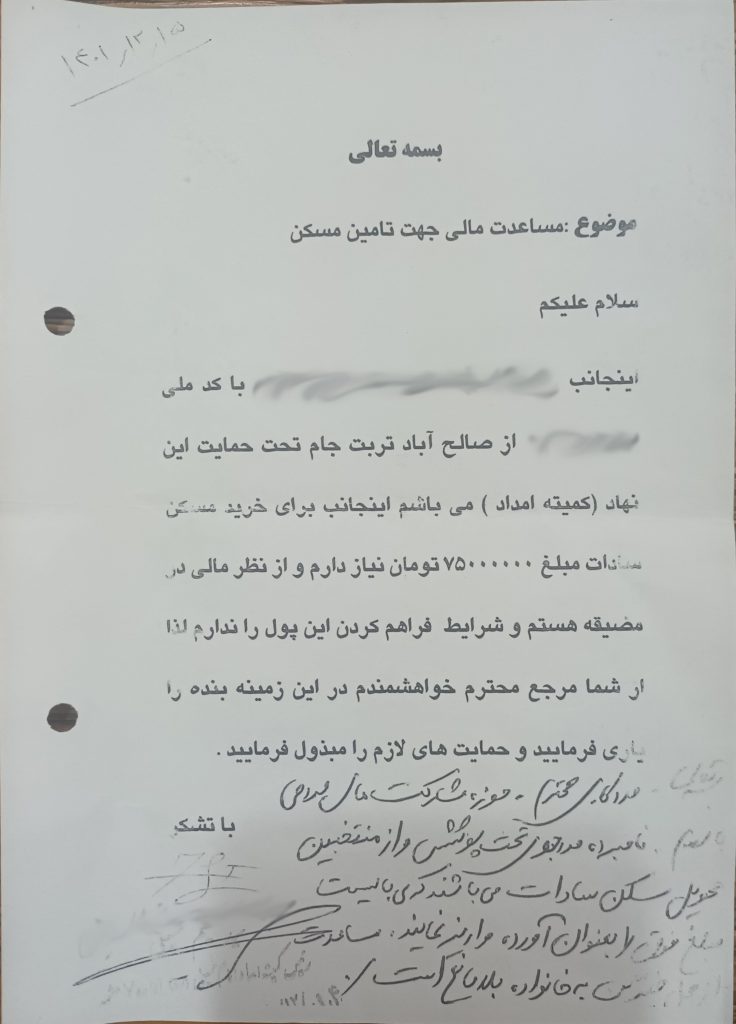 ۱۴۰۱/۱۲/۱۵
بسمه تعالی
موضوع :مساعدت مالی جهت تامین مسکن
سلام علیکم
اینجانب با کد ملی
از صالح آباد تربت جام تحت حمایت این
نهاد (کمیته امداد ) می باشم اینجانب برای خرید مسکن
سادات مبلغ ۷۵۰۰۰۰۰۰ تومان نیاز دارم و از نظر مالی در
مضیقه هستم و شرایط فراهم کردن این پول را ندارم لذا
از شما مرجع محترم خواهشمندم در این زمینه بنده را
یاری فرمایید و حمایت های لازم را مبذول فرمایید .
با تشکر
مددکاری محترم - حوزه مشارکت های
نامبرده مددجوی تحت پوشش و از منتخبین
تحویل مسکن سادات می باشند که می بایست
مبلغ فوق را بعنوان آورده واریز نمایند. مساعدت
به خانواده بلامانع است